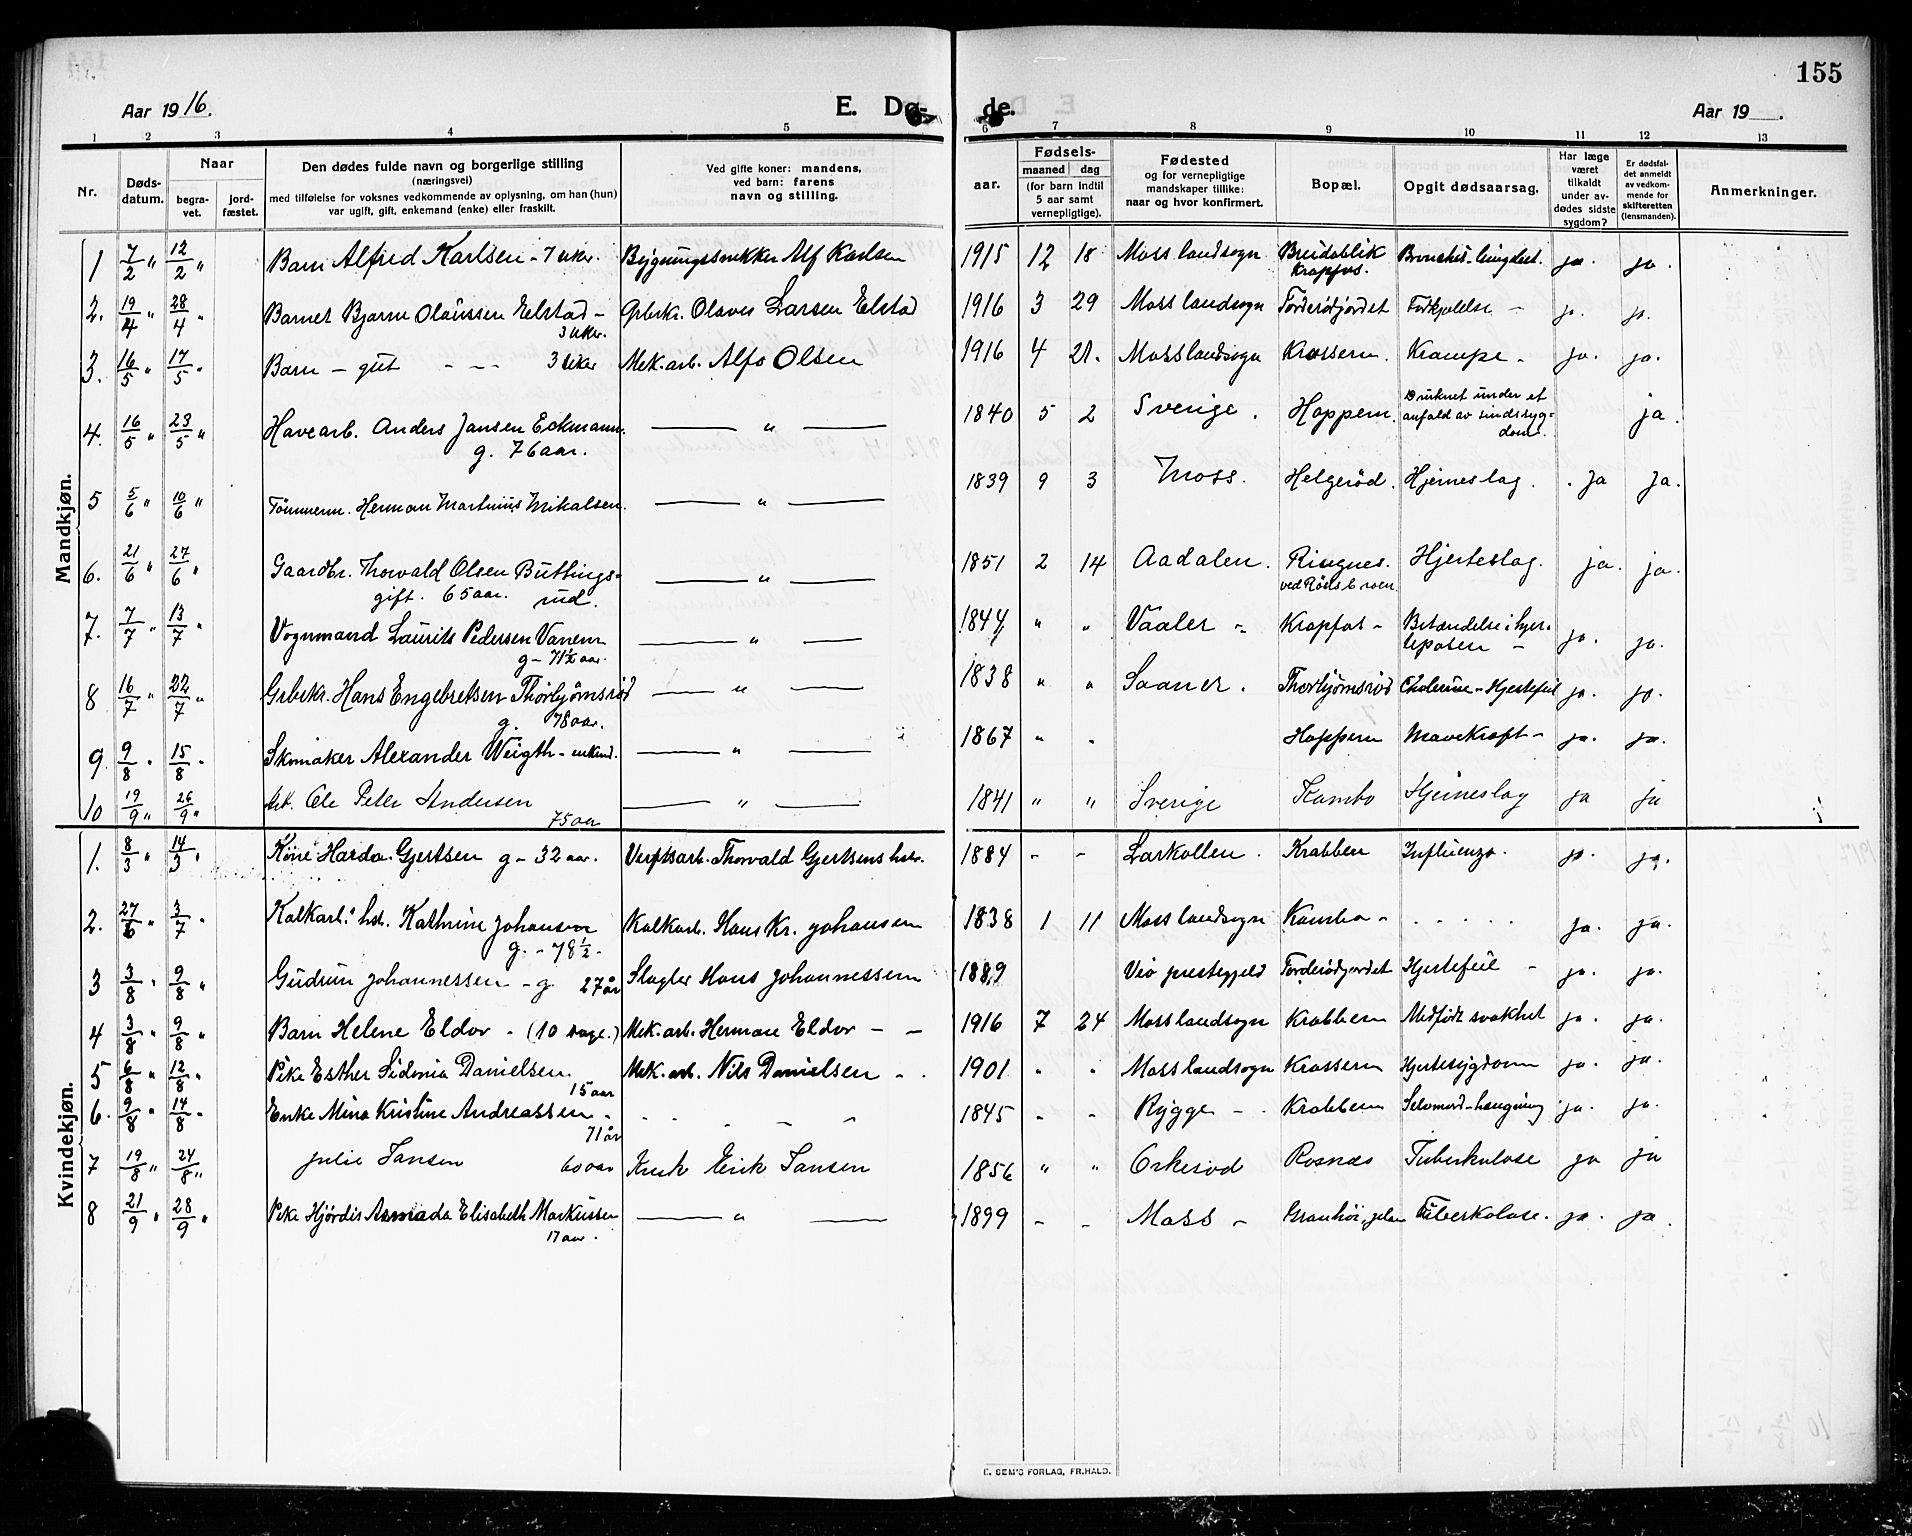 155
Aar 1916.
E. Dø- de.
Aar 19 .
1 2 3 4 5 6 7 8 9 10 11 12 13
Nr.
Døds-
datum.
Naar
begra-
vet.
jord-
fæstet.
Den dødes fulde navn og borgerlige stilling
(næringsvei)
med tilføielse for voksnes vedkommende av oplysning, om han (hun)
var ugift, gift, enkemand (enke) eller fraskilt.
Ved gifte koner: mandens,
ved barn: farens
navn og stilling.
Fødsels-
aar.
maaned dag
(for barn indtil
5 aar samt
vernepligtige).
Fødested
og for vernepligtige
mandskaper tillike:
naar og hvor konfirmert.
Bopæl.
Opgit dødsaarsag.
Har læge
været
tilkaldt
under av-
dødes sidste
sygdom?
Er dødsfal-
det anmeldt
av vedkom-
mende for
skifteretten
(lensmanden).
Anmerkninger.
Mandkjøn.
1 7/2 " 12/2 " Barn Alfred Karlsen - 7 uker. Bygningssnekker Alf Karlsen 1915 12 18 Moss landsogn Breidablik Bronchit- ja. ja.
Krapfos.
2. 19/4 " 28/4 " Barnet Bjarne Olaussen Elstad - Grbrkr. Olaves Larsen Elstad 1916 3 29 Moss landsogn Torderødjordet Forkjølelse - ja. ja.
3 uker.
3. 16/5 " 17/5 " Barn - gut - - - 3 uker Mek. arb. Alfo Olsen 1916 4 21. Moss landsogn Krossern. Krampe - ja. ja.
4. 16/5 " 23/5 " Havearb. Anders Jansen Eckmann. " 1840 5 2 Sverige. Hoppern. Druknet under et
anfald av sindssyg-
dom. ja.
g. 76 aar.
5 5/6 " 10/6 " Tømmerm. Herman Martinius Mikalsen. " 1839 9 3 Moss. Helgerød. Hjerneslag. Ja Ja.
6. 21/6 " 27/6 " Gaardbr. Thorvald Olsen Buttings- " 1851 2 14 Aadalen. Ringnes. Hjerteslag. ja. ja.
gift. 65 aar. rud. ved Röds
7. 7/7 " 13/7 " Vognmand Laurits Pedersen Vanem " 1844 " " Vaaler - Krapfos - Betændelse i hjer-
g - 71½ aar. teposen - ja. ja.
8 16/7 " 22/7 " Grbrkr. Hans Engebretsen Thorbjörnsröd " 1838 " " Saaner. Thorbjörnsröd Cholerine - Hjertefeil ja. ja.
g. 78 aar.
9 9/8 " 15/8 " Skomaker Alexander Weigth - enkemd. " 1867 " " Hoppern Mavekræft - ja. ja.
10 19/9 " 26/9 " Arb. Ole Peter Andersen " 1841 " " Sverige Kambo Hjerneslag ja ja
75 aar
Kvindekjøn.
1. 8/3 " 14/3 " Kone Harda Gjertsen g - 32 aar. Verftsarb. Thorvald Gjertsens hstr. 1884 - - Larkollen. Krabben Influenza. ja. ja.
2. 27/6 " 3/7 " Kalkarb. hst. Kathrine Johansen Kalkarb. Hans Kr. Johansen 1838 1 11 Moss landsogn Kambo - . . . . . ja. ja.
g. - 78½ -
3 3/8 " 9/8 " Gudrun Johannessen - g. 27 år Slagter Hans Johannessen 1889 Viö prestegjeld Torderødjordet Hjertefeil - ja. ja.
4 3/8 " 9/8 " Barn Helene Eldor - (10 dage.) Mek. arb. Herman Eldor - - 1916 7 24 Moss landsogn Krabbern Medfödt svakhet ja. ja.
5 6/8 " 12/8 " Pike Esther Sidonia Danielsen. Mek. arb. Nils Danielsen - . 1901 " " Moss landsogn Krossern Hjertesygdom ja. ja.
15 aar
6. 9/8 " 14/8 " Enke Mina Kristine Andreassen - 1845 - - Rygge - . Krabbern Selvmord-hængning ja. ja.
71 år
7 19/8 " 24/8 " Julie Jansen 60 aar Erik Jansen 1856 " " Orkeröd Rosnæs Tuberkulose ja ja
8 21/9 " 28/9 " Pike Hjördis Asmada Elisabeth Markussen " 1899 - - Moss - Granhöi, Jelöen Tuberkolose. ja. ja.
17 aar.
E. SEM'S FORLAG, FR.HALD.